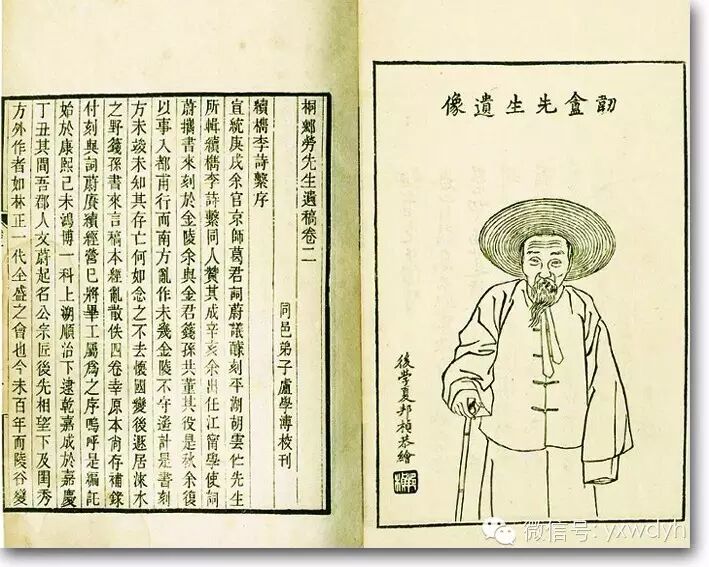 韌盦先生遺像
後學夏邦楨恭繪
桐鄉勞先生遺稿卷二
同邑弟子盧學溥校刊
續檇李詩繫序
宣統庚戌余官京師葛君詞蔚議醵刻平湖胡雲伫先生
所輯續檇李詩繫同人贊其成辛亥余出任江甯學使詞
蔚攜書來刻於金陵余與金君籛孫共董其役是秋余復
以事入都甫行而南方亂作未幾金陵不守遙計是書刻
方未竣未知其存亡何如念之不去懷國變後遯居淶水
之野籛孫書來言稿本經亂散佚四卷幸原本尚存補錄
付刻與詞蔚賡續經營已將畢工屬爲之序嗚呼是編託
始於康熙己未鴻博一科上溯順治下逮乾嘉成於嘉慶
丁丑其間吾郡人文蔚起名公宗匠後先相望下及閨秀
方外作者如林正一代全盛之會也今未百年而陵谷變
微信号: yxwdyh